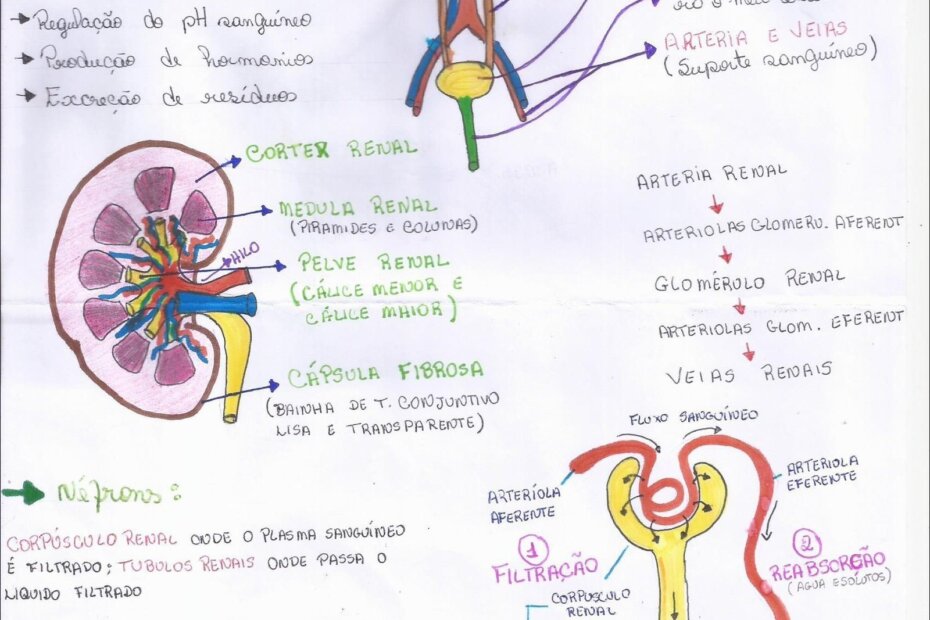 → Regulação do pH sanguíneo
→ Produção de hormonios
→ Excreção de resíduos
ARTERIA E VEIAS
(Suporte sanguíneo)
CORTEX RENAL
MEDULA RENAL
(PIRAMIDES E COLUNAS)
HILO
PELVE RENAL
(CÁLICE MENOR E
CÁLICE MAIOR)
CÁPSULA FIBROSA
(BAINHA DE T. CONJUNTIVO
LISA E TRANSPARENTE)
ARTERIA RENAL
ARTERIOLAS GLOMERU. AFERENT
GLOMÉRULO RENAL
ARTERIOLAS GLOM. EFERENT
VEIAS RENAIS
→ Néfrons:
CORPÚSCULO RENAL ONDE O PLASMA SANGUÍNEO
É FILTRADO; TUBULOS RENAIS ONDE PASSA O
LIQUIDO FILTRADO
FLUXO SANGUÍNEO
ARTERÍOLA
AFERENTE
ARTERIOLA
EFERENTE
1
FILTRAÇÃO
CORPUSCULO
RENAL
2
REABSORÇÃO
(AGUA E SOLUTOS)